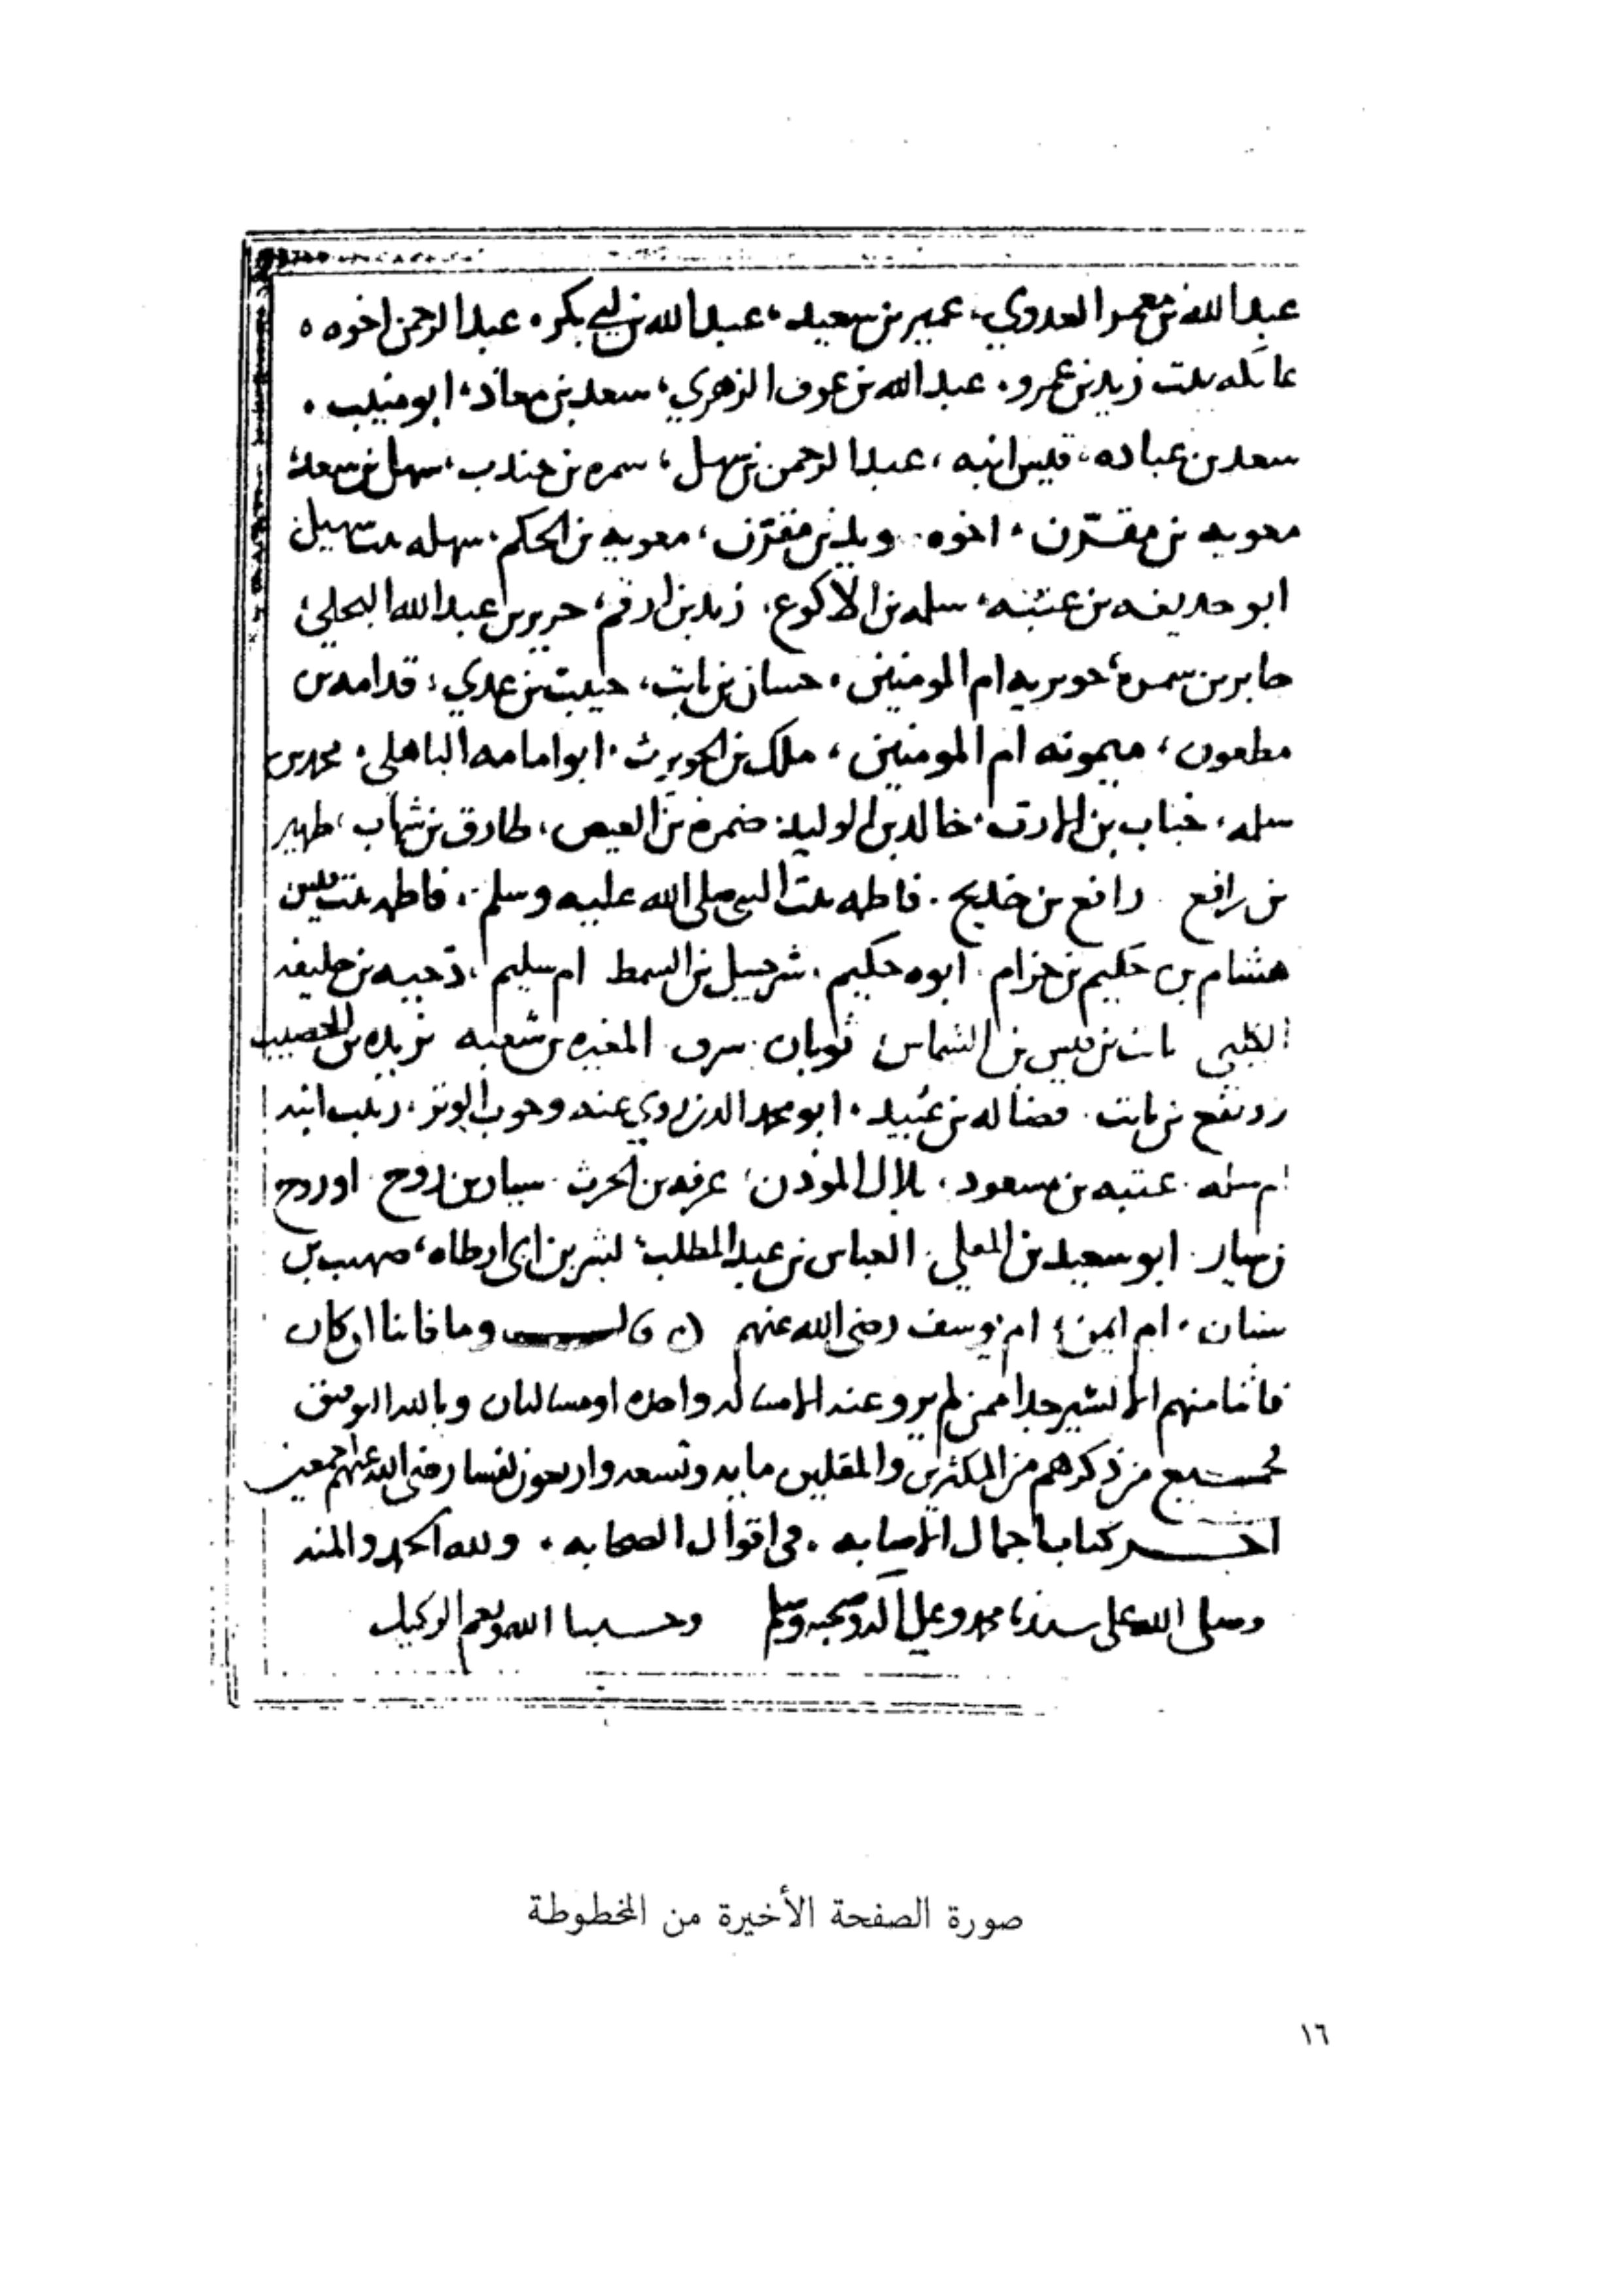 عبد الله بن معمر العدوي، عمير بن سعيد، عبد الله بن ابي بكر، عبد الرحمن اخوه،
عاتكه بنت زيد بن عمرو، عبد الله بن عوف الزهري، سعد بن معاذ، ابو منيب،
سعد بن عباده، قيس ابنه، عبد الرحمن بن سهل، سمره بن جندب، سهل بن سعد،
معويه بن مقرن، اخوه سويد بن مقرن، معويه بن الحكم، سهله بنت سهيل
ابو حذيفه بن عتبه، سلمه بن الاكوع، زيد بن ارقم، جرير بن عبد الله البجلي،
جابر بن سمره، جويريه ام المومنين، حسان بن ثابت، حبيب بن عدي، قدامه بن
مظعون، ميمونه ام المومنين، ملك بن الحويرث، ابو امامه الباهلي، محمد بن
سلمه، خباب بن الارت، خالد بن الوليد، ضمره بن العيص، طارق بن شهاب، ظهير
بن رافع رافع بن خديج، فاطمه بنت النبي صلى الله عليه وسلم، فاطمه بنت قيس
هشام بن حكيم بن حزام ابوه حكيم، شرحبيل بن السمط ام سليم، دحيه بن خليفه
الكلبي ثابت بن قيس بن الشماس، ثوبان سرق المغيره بن شعبه بريده بن الحصيب
رويفع بن ثابت، فضاله بن عبيد، ابو محمد روي عنه وجوب الوتر، زينب ابنه
ام سلمه، عتبه بن مسعود، بلال الموذن، عرفه بن الحرث سيار بن روح او روح
بن سيار، ابو سعيد بن المعلى، العباس بن عبد المطلب، بشر بن ابي ارطاه، صهيب بن
سنان، ام ايمن، ام يوسف رضي الله عنهم وما فاتنا ان كان
فاتنا منهم الا يسير جدا ممن لم يرو عنه الا مساله واحده او مسالتان وبالله التوفيق
فجميع من ذكرهم من المكثرين والمقلين مايه وتسعه واربعون نفسا رضي الله عنهم اجمعين
اخر كتاب اجمال الاصابه، في اقوال الصحابه، ولله الحمد والمنه
وصلى الله على سيدنا محمد وعلى اله وصحبه وسلم وحسبنا الله ونعم الوكيل
صورة الصفحة الأخيرة من المخطوطة
١٦